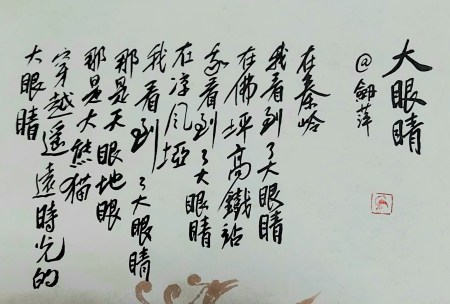 大眼睛
@劍萍
在秦岭
我看到了大眼睛
在佛坪高鐵站
我看到了大眼睛
在凉風埡
我看到了大眼睛
那是天眼地眼
那是大熊猫
穿越遥遠時光的
大眼睛